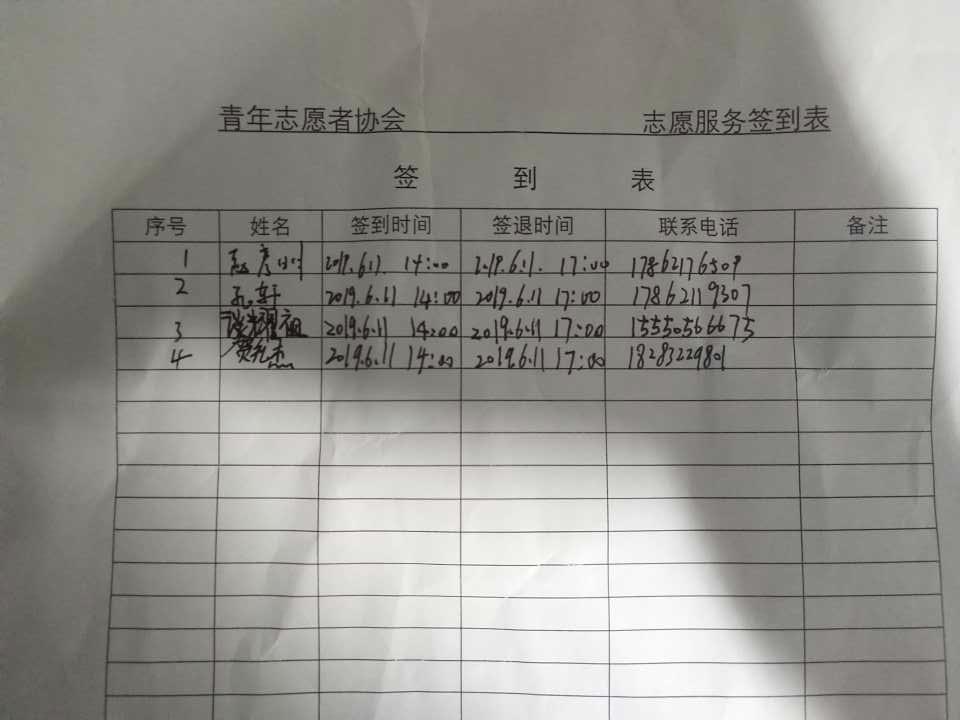 青年志愿者协会 志愿服务签到表
签 到 表
序号 姓名 签到时间 签退时间 联系电话 备注
1 2019.6.11. 14:00 2019.6.11. 17:00 17862176509
2 孔轩 2019.6.11 14:00 2019.6.11 17:00 17862119307
3 谈耀祖 2019.6.11 14:00 2019.6.11 17:00 15550566675
4 2019.6.11 14:00 2019.6.11 17:00 18283229801